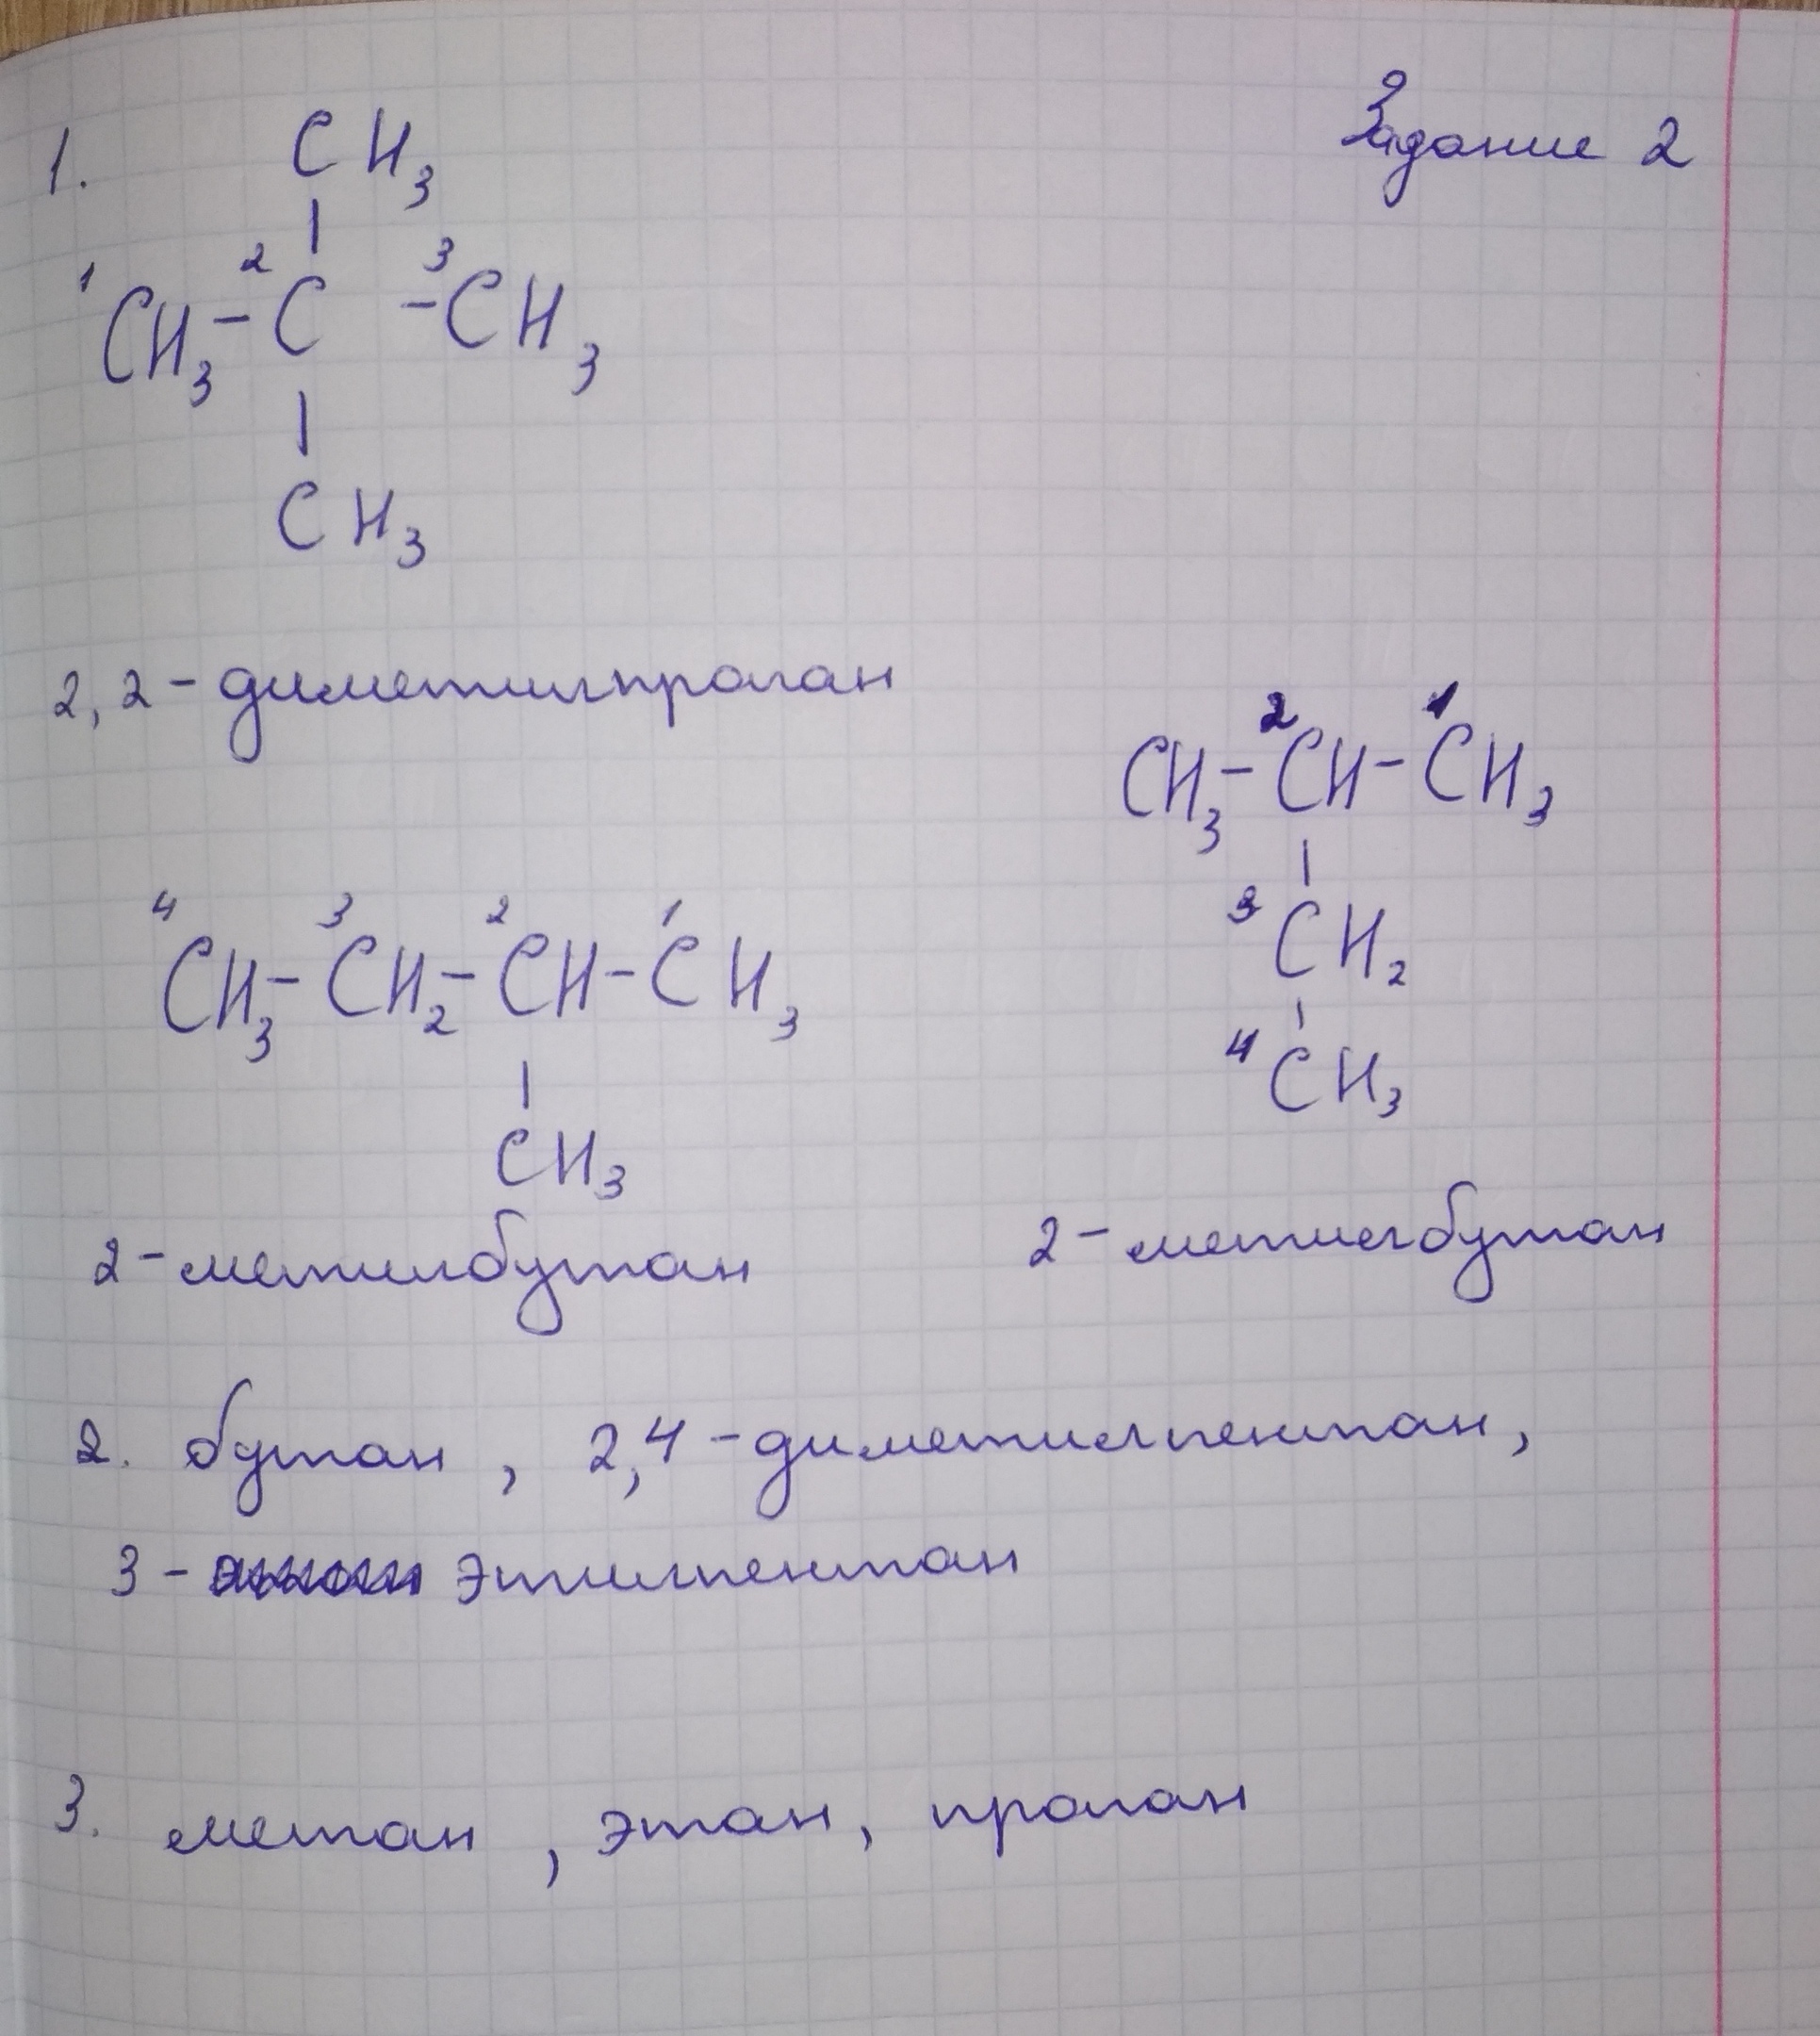 Задание 2
1. CH3
1 CH3 - 2 C - 3 CH3
CH3
2,2 - диметилпропан
CH3 - 2 CH - 1 CH3
3 CH2
4 CH3
2 - метилбутан
4 CH3 - 3 CH2 - 2 CH - 1 CH3
CH3
2 - метилбутан
2. бутан, 2,4 - диметилпентан,
3 - этилпентан
3. метан, этан, пропан